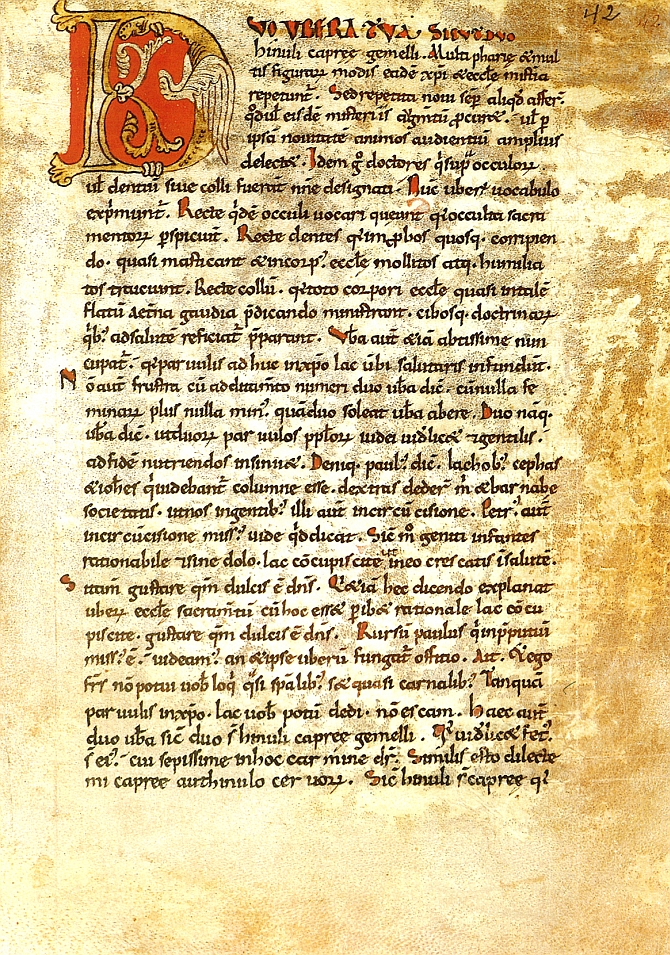 42
DUO UBERA TUA SICUT DUO
hinuli capree gemelli. Multi pharie & mul
tis figurarū modis eadē xp̄i & eccl̄e misteria
repetunt. Sed repetita noui sēp aliq̄d affer̄.
q̄d ul̄ eisdē misteriis augm̄tū p̄cur&. ul̄ p
ipsā nouitatē animos audientiū amplius
delect&. Idem g̊ doctores q̄ sup̄ occulorū
ul̄ dentiū siue colli fuerāt nn̄e designati. Nūc uberū uocabulo
exp̄munt̄. Recte q̄dē occuli uocari queunt q̄ occulta sacra
mentorū p̄spiciūt. Recte dentes q̄ imp̄bos quosq. corripien
do. quasi masticant & incorp̄. eccl̄e mollitos atq. humilia
tos traiciunt. Recte collū. q̄ toto corpori eccl̄e quasi uitalē
flatū aet̄na gaudia p̄dicando ministrant. cibosq. doctrinarū
q̄b; ad salutē reficiat̄ p̄parant. Vb̄a aut̄ &iā abtissime nun
cupat̄. q̄ paruulis ad huc in xp̄o lac ūbi salutaris infundūt.
No aut̄ frustra cū additam̄to numeri duo ub̄a dic̄. cū nulla fe
minarū plus nulla min; quā duo soleat ub̄a abere. Duo nāq.
ub̄a dic̄. ut duorū paruulos pp̄lorū iudei uid̄lic& & gentilis.
ad fidē nutriendos insinu&. Deniq. paul; dic̄. Iachob; cephas
& ioh̄es q̄ uidebant̄ columne esse. dextras deder̄ m̄ & barnabe
societatis. ut nos in gentib; illi aut̄ in circūcisione. Petr; aut̄
in circūcisione miss; uide q̄d dicat. Sic m̊ geniti infantes
rationabile & sine dolo. lac cōcupiscite ut in eo crescatis ī salutē.
Si tam̄ gustare q̄m dulcis ē dn̄s. Q& iā hec dicendo explanat
uberū eccl̄e sacram̄tū cū hoc ess& p̄ib& rationale lac cōcu
piscite. gustare q̄m dulcis ē dn̄s. Rursū paulus q̄ in p̄putiū
miss; ē. uideam; an & ipse uberū fungat̄ offitio. Ait. Et ego
fr̄s nō potui uob̄ loq̄ q̄si sp̄alib; sed quasi carnalib; Tanquā
paruulis in xp̄o. lac uob̄ potū dedi. nō escam. Haec aut̄
duo ub̄a sic̄ duo s̄ hinuli capree gemelli. uid̄lic& fet;
s̄ ei; cui sepissime in hoc carmine dr̄. Similis esto dilecte
mi capree aut hinulo ceruorū. Sic̄ hinuli s̄ capree q̄